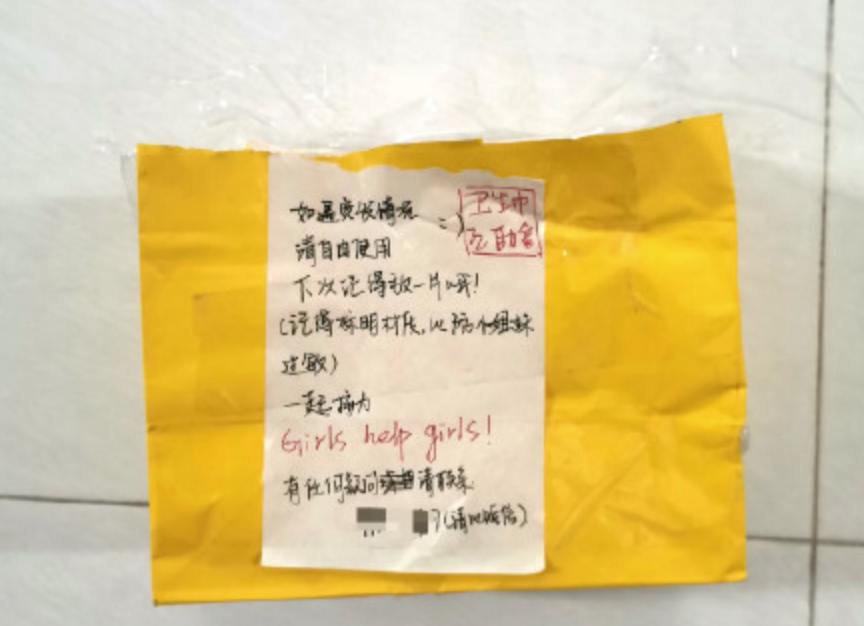 如遇突发情况 =)
卫生巾
互助盒
请自由使用
下次记得放一片哦!
(记得标明材质,以防小姐妹
过敏)
一起接力
Girls help girls!
有任何疑问请联系
(请以短信)